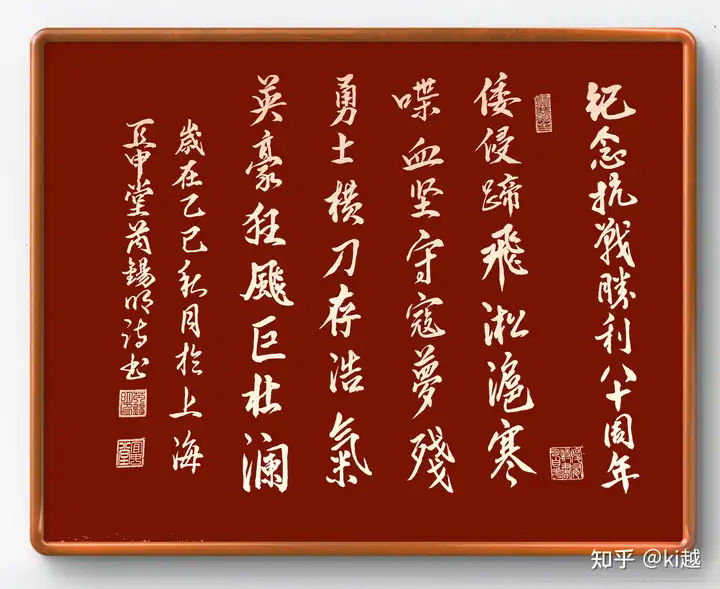 纪念抗戰勝利八十周年
倭侵蹄飛淞滬寒
喋血坚守寇夢殘
勇士横刀存浩氣
英豪狂飚巨壮澜
歲在乙巳秋月於上海
堂芮錫明诗书
知乎 @ki越